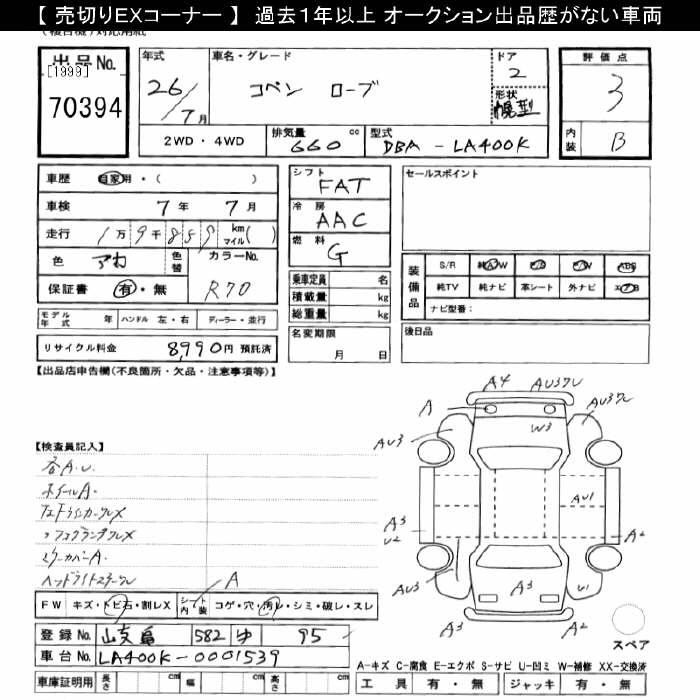 【 売切りEXコーナー 】 過去1年以上 オークション出品歴がない車両
出品No.
[1999]
70394
年式
26/7月
車名・グレード
コペン ローブ
ドア
2
形状
幌型
評価点
3
内装
B
2WD・4WD
排気量
660cc
型式
DBA - LA400K
車歴 自家用・( )
車検 7年 7月
走行 1万9千859 km マイル( )
色 アカ 色替 カラーNo. R70
保証書 有・無
モデル年式 年 ハンドル 左・右 ディーラー・並行
リサイクル料金 8,990円 預託済
シフト FAT
冷房 AAC
燃料 G
乗車定員 名
積載量 kg
総重量 kg
名変期限
月 日
セールスポイント
装備品
S/R 純AW P/S P/W ABS
純TV 純ナビ 革シート 外ナビ エアB
ナビ型名:
後日品
【出品店申告欄(不良箇所・欠品・注意事項等)】
【検査員記入】
各A.U.
ホイールA.
ヘッドライトスチール
A
FW キズ・トビ石・割レX
シート内装 コゲ・穴・汚レ・シミ・破レ・スレ
登録No. 582 ゆ 95
車台No. LA400K-0001539
車庫証明用 長さ cm 幅 cm 高さ cm
A4
A
AU3
W3
AU1
A3
U2
A2
AU3
A3
U1
A3
A2
スペア
A-キズ C-腐食 E-エクボ S-サビ U-凹ミ W-補修 XX-交換済
工具 有・無 ジャッキ 有・無